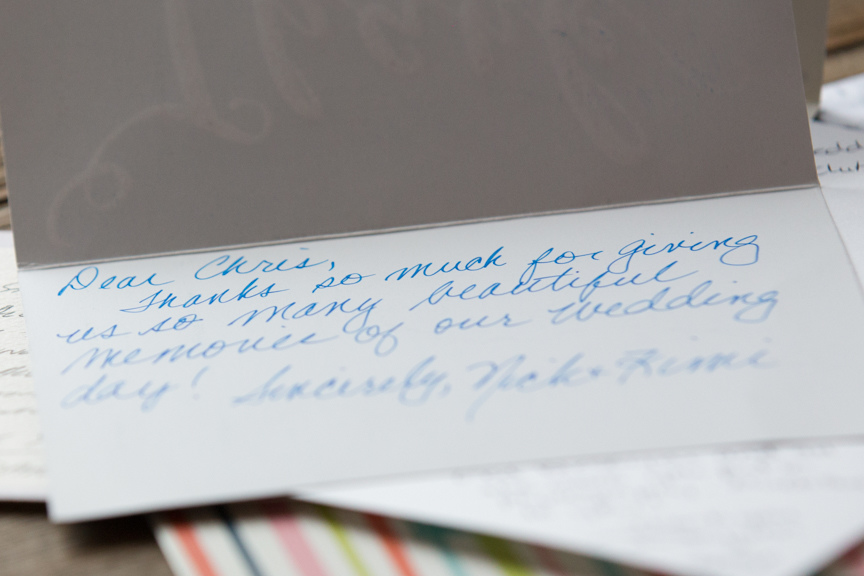 Dear Chris,
Thanks so much for giving
us so many beautiful
memories of our wedding
day! Sincerely, Nick + Kimi